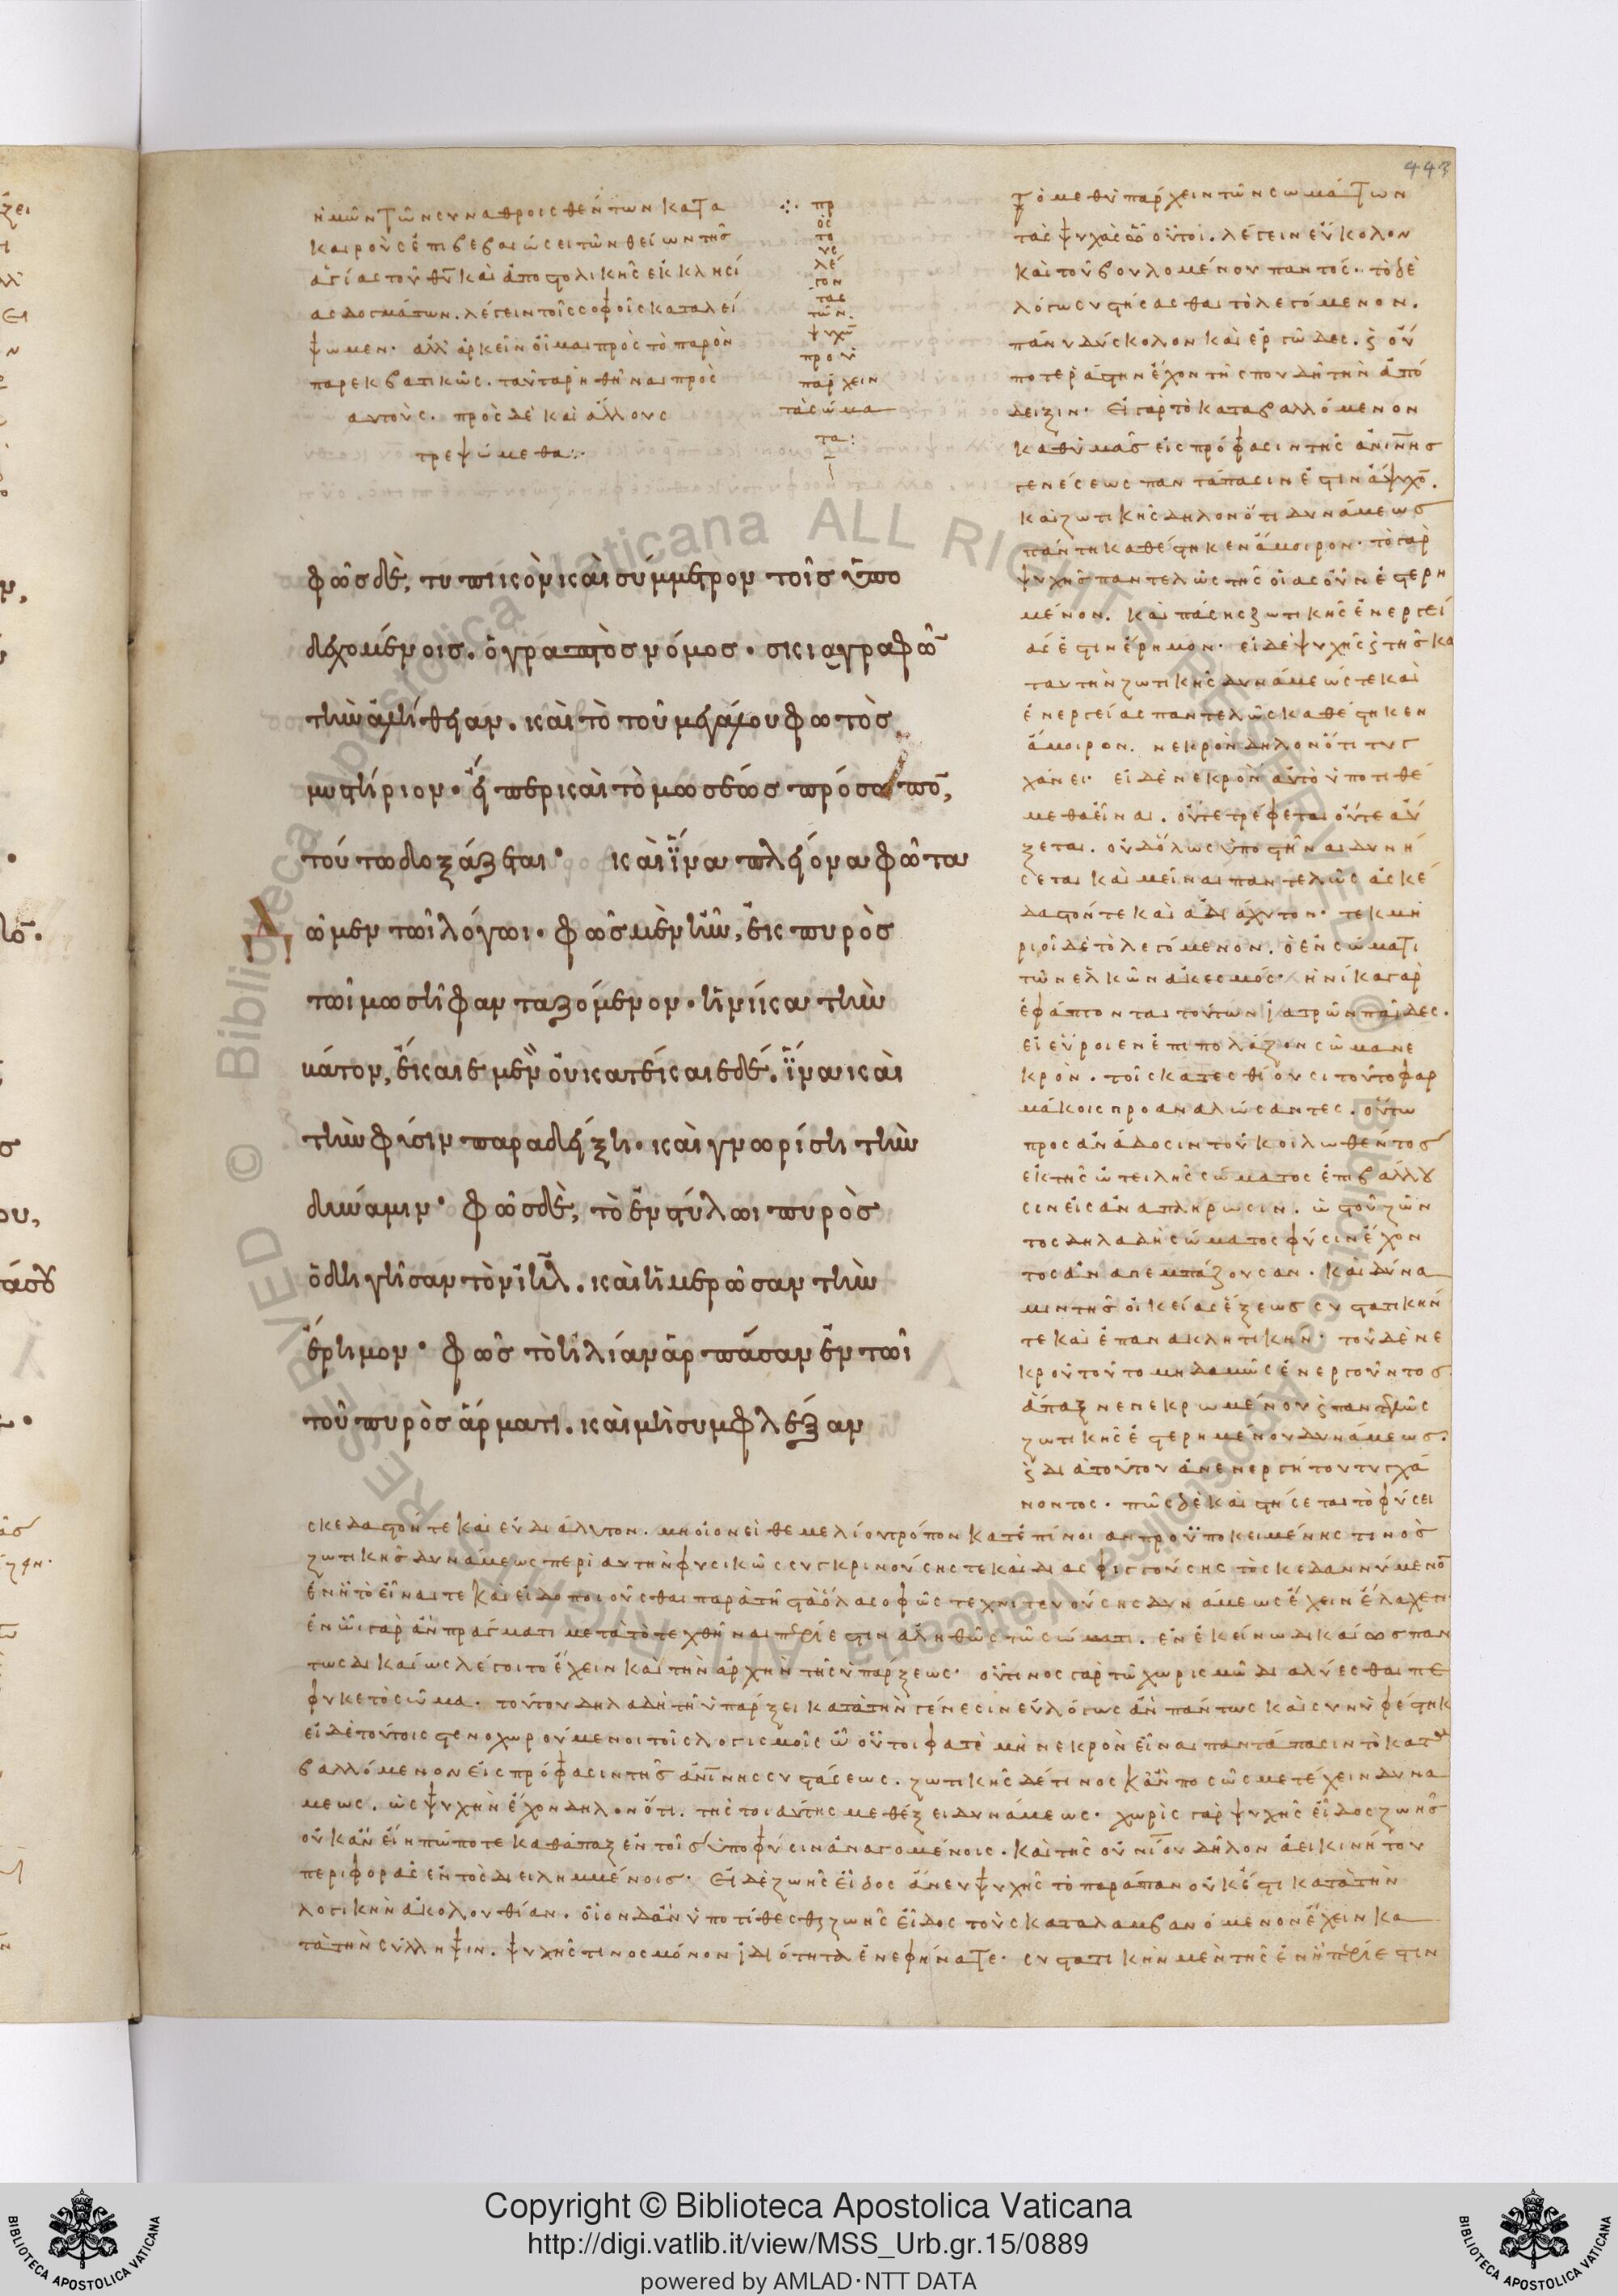 443
ἡμῶν τῶν συναθροισθέντων κατα
καιροὺς ἐπιβεβαιώσει τῶν θείων τῆς
ἁγίας τοῦ θυ καὶ ἀποστολικῆς ἐκκλησί
ας δογμάτων. λέγειν τοῖς σοφοῖς καταλεί
ψωμεν· ἀλλ' ἀρκεῖν οἶμαι πρὸς τὸ παρὸν
παρεκβατικῶς. ταῦτα ῥηθῆναι πρὸς
αυτοὺς. πρὸς δὲ καὶ ἄλλους
τρεψώμεθα:·
πρ
ὸς
το
υς
λέ
γον
τας
τῶν
ψυχῶν
προϋ
πάρχειν
τὰ σώμα
τα:
φῶς δὲ, τυπικὸν καὶ σύμμετρον τοῖς ὑπο
δεχομένοις. ὁ γραπτὸς νόμος· σκιαγραφῶν
τὴν ἀλήθειαν. καὶ τὸ τοῦ μεγάλου φωτὸς
μυστήριον· εἴπερ καὶ τὸ μωσέως πρόσωπον,
τούτω δοξάζεται· καὶ ἵνα πλείονα φῶτα
Δῶμεν τῶι λόγωι· φῶς μὲν ἦν, ἐκ πυρὸς
τῶι μωσῆ φανταζόμενον· ἡνίκα τὴν
βάτον, ἔκαιε μὲν οὐ κατέκαιε δέ. ἵνα καὶ
τὴν φύσιν παραδείξη· καὶ γνωρίση τὴν
δύναμιν· φῶς δὲ, τὸ ἐν στύλωι πυρὸς
ὁδηγῆσαν τὸν ιηλ. καὶ ἡμερῶσαν τὴν
ἔρημον· φῶς τὸ ἠλίαν ἁρπάσαν ἐν τῶι
τοῦ πυρὸς ἅρματι. καὶ μὴ συμφλέξαν
τὸ μεθυπάρχειν τῶν σωμάτων
τὰς ψυχὰς ὦ οὗτοι. λέγειν εὔκολον
καὶ τοῦ βουλομένου παντός· τὸ δὲ
λόγω συστήσασθαι τὸ λεγόμενον.
πάνυ δύσκολον καὶ ἐργῶδες. ϗ οὐ
ποτέρα στην ἔχον τῆς σπουδῆς τὴν ἀπό
δειξιν· Εἰ γὰρ τὸ καταβαλλόμενον
καθ' ὑμᾶς εἰς πρόφασιν τῆς ἀνίνης
γενέσεως παντάπασιν ἐστὶν ἄψυχον.
καὶ ζωτικῆς δηλονότι δυνάμεως
πάντη καθέστηκεν ἄμοιρον· τὸ γὰρ
ψυχῆς παντελῶς τῆς οἱασοῦν ἐστερη
μένον. καὶ πάσης ζωτικῆς ἐνεργεί
ας ἐστὶν ἔρημον· εἰ δὲ ψυχῆς ϗ τῆς κα
ταυτὴν ζωτικῆς δυνάμεώς τε καὶ
ἐνεργείας παντελῶς καθέστηκεν
ἄμοιρον. νεκρὸν δηλονότι τυγ
χάνει· εἰ δὲ νεκρὸν αὐτὸ ὑποτιθέ
μεθα εἶναι. οὔτε τρέφεται οὔτε αὔ
ξεται. οὐδόλως ὑποστῆναι δυνή
σεται καὶ μεῖναι παντελῶς ἀσκέ
δαστόν τε καὶ ἀδιάχυτον· τεκμη
ριοῖ δὲ τὸ λεγόμενον. ὁ ἐν σώματι
τῶν ἑλκῶν ἀκεσμός· ἡνίκα γὰρ
ἐφάπτονται τούτων ἰατρῶν παῖδες.
εἰ εὕροιεν ἐπιπολάζον σῶμα νε
κρὸν. τοῖς κατεσθίουσι τοῦτο φαρ
μάκοις προαναλώσαντες. οὕτω
πρὸς ἀνάδοσιν τοῦ κοιλωθέντος
ἐκ τῆς ὠτειλῆς σώματος ἐπιβάλλου
σιν εἰς ἀναπλήρωσιν. ὡς τοῦ ζῶν
τος δηλαδὴ σώματος φύσιν ἔχον
τος ἀναπεμπάζουσαν. καὶ δύνα
μιν τῆς οἰκείας ἕξεως συστατικήν
τε καὶ ἐπανακλητικήν· τοῦ δὲ νε
κροῦ τοῦτο μηδαμῶς ἐνεργοῦντος
ἅπαξ νενεκρωμένου ϗ παντελῶς
ζωτικῆς ἐστερημένου δυνάμεως.
ϗ διὰ τοῦτου ἀνενεργήτου τυγχά
νοντος· πῶς δὲ καὶ στήσεται τὸ φύσει
σκεδαστόν τε καὶ εὐδιάλυτον. μὴ οἱονεὶ θεμελίου τρόπον κατ' ἐπίνοιαν προϋποκειμένης τινος
ζωτικῆς δυνάμεως περὶ αυτὴν φυσικῶς συγκρινούσης τε καὶ διασφιγγούσης τὸ σκεδαννύμενον
ἐν ἧ τὸ εἶναι τε καὶ εἰδοποιοῦσθαι παρὰ τῆς τὰ ὅλα σοφῶς τεχνιτευούσης δυνάμεως ἔχειν ἔλαχεν
ἐν ὧι γὰρ ἂν πράγματι μετὰ τὸ τεχθῆναι ἐστιν ἀληθῶς τῶ σώματι. ἐν ἐκείνω δικαίως παν
τως δικαίως λέγοιτο ἔχειν καὶ τὴν ἀρχὴν τῆς ὑπάρξεως· οὗτινος γὰρ τῶ χωρισμῶ διαλύεσθαι πέ
φυκε τὸ σῶμα· τούτου δηλαδὴ τῆ ὑπάρξει κατὰ τὴν γένεσιν εὐλόγως ἂν πάντως καὶ συνυφέστηκε
εἰ δὲ τούτοις στενοχωρούμενοι τοῖς λογισμοῖς ὦ οὗτοι φατὲ μὴ νεκρὸν εἶναι παντάπασιν τὸ κατα
βαλλόμενον εἰς πρόφασιν τῆς ἀνίνης συστάσεως. ζωτικῆς δέ τινος κἂν ποσῶς μετέχειν δυνα
μεως. ὡς ψυχὴν ἔχον δηλονότι. τῆς τοιαύτης μεθέξει δυνάμεως· χωρὶς γὰρ ψυχῆς εἶδος ζωῆς
οὐκ ἂν εἴη πώποτε καθάπαξ ἐν τοῖς ὑπὸ φύσιν ἀναγομένοις. καὶ τῆς οὐνίου δῆλον ἀεικινήτου
περιφορᾶς ἐντὸς διειλημμένοις· Εἰ δὲ ζωῆς εἶδος ἄνευ ψυχῆς τὸ παράπαν οὐκ ἔστι κατὰ τὴν
λογικὴν ἀκολουθίαν. οἷον δ' ἂν ὑποτίθεσθε ζωῆς εἶδος τοὺς καταλαμβανόμενον ἔχειν κα
τὰ τὴν σύλληψιν. ψυχῆς τινος μόνον ἰδιότητα ἐνεφήνατε· συστατικὴν μὲν τῆς ἐν ἧ ἐστιν
Copyright © Biblioteca Apostolica Vaticana
http://digi.vatlib.it/view/MSS_Urb.gr.15/0889
powered by AMLAD·NTT DATA
BIBLIOTECA APOSTOLICA VATICANA
BIBLIOTECA APOSTOLICA VATICANA